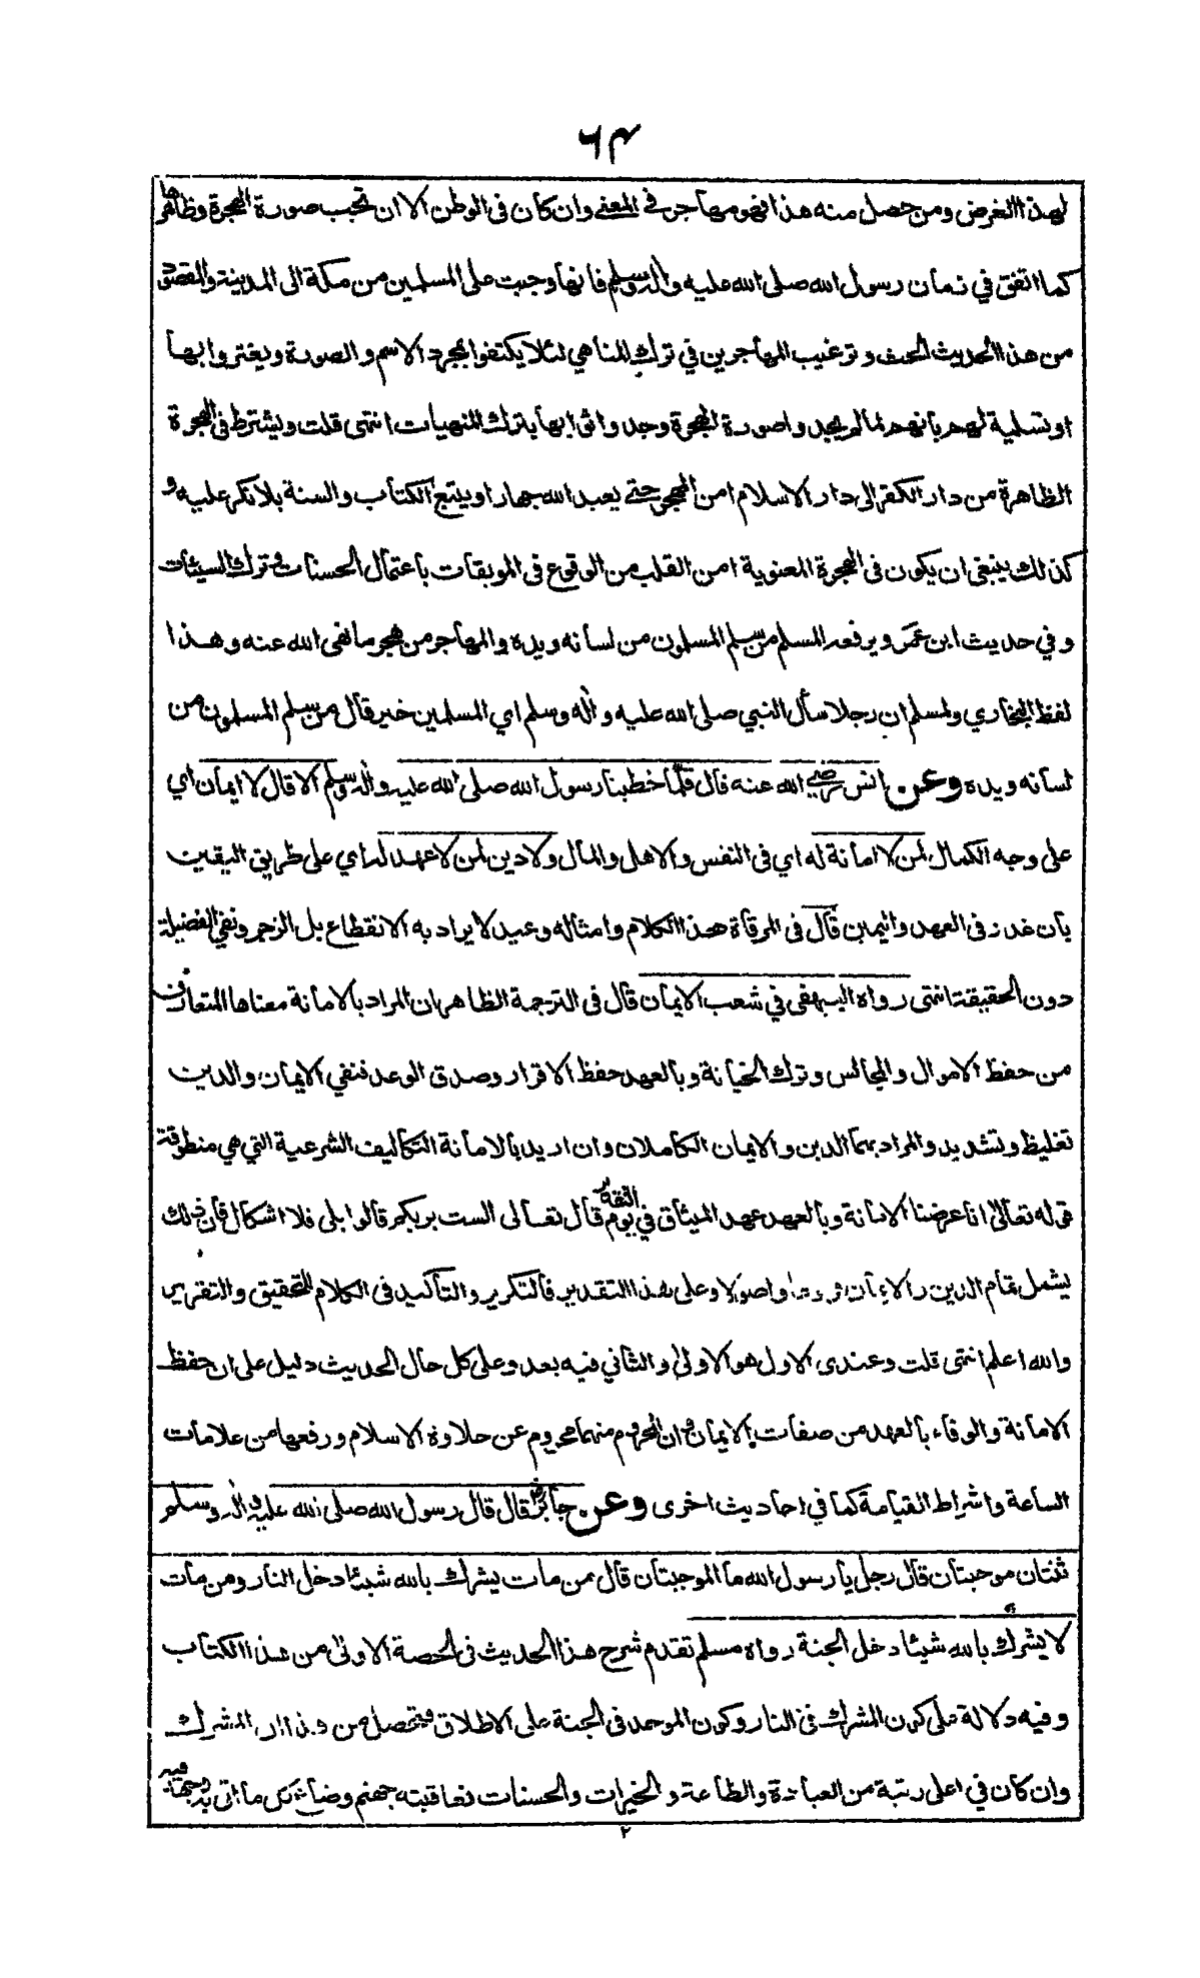 ٦٤
لهذا الغرض ومن حصل منه هذا فهو مهاجر في المعنى وان كان فى الوطن الا ان تجب صورة الهجرة وظاهرها
كما اتفق في زمان رسول الله صلى الله عليه واله وسلم فانها وجبت على المسلمين من مكة الى المدينة والمقصود
من هذا الحديث الحث وترغيب المهاجرين في ترك المناهي لئلا يكتفوا بمجرد الاسم والصورة ويغتروا بها
او تسلية لهم بانهم لما لم يجدوا صورة الهجرة وجدوا ثوابها بترك المنهيات انتهى قلت ويشترط فى الهجرة
الظاهرة من دار الكفر الى دار الاسلام امن المهجر حتى يعبد الله جهارا ويتبع الكتاب والسنة بلا نكر عليه و
كذلك ينبغى ان يكون فى الهجرة المعنوية امن القلب من الوقوع فى الموبقات باعتمال الحسنات وترك السيئات
و في حديث ابن عمر ويرفعه المسلم من سلم المسلمون من لسانه ويده والمهاجر من هجر ما نهى الله عنه وهذا
لفظ البخاري ولمسلم ان رجلا سأل النبي صلى الله عليه واله وسلم اي المسلمين خير قال من سلم المسلمون من
لسانه ويده وعن انس رضي الله عنه قال قلما خطبنا رسول الله صلى الله عليه واله وسلم الا قال لا ايمان اي
على وجه الكمال لمن لا امانة له اي فى النفس والاهل والمال ولا دين لمن لا عهد له اي على طريق اليقين
بان غدر فى العهد واليمين قال فى المرقاة هذا الكلام وامثاله وعيد لا يراد به الانقطاع بل الزجر ونفي الفضيلة
دون الحقيقة انتهى رواه البيهقى في شعب الايمان قال فى الترجمة الظاهر ان المراد بالامانة معناها المتعارف
من حفظ الاموال والمجالس وترك الخيانة وبالعهد حفظ الاقرار وصدق الوعد فنفي الايمان والدين
تغليظ وتشديد والمراد بهما الدين والايمان الكاملان وان اريد بالامانة التكاليف الشرعية التي هي منطوقة
قوله تعالى انا عرضنا الامانة وبالعهد عهد الميثاق في يوم قال تعالى الست بربكم قالوا بلى فلا اشكال فان ذلك
يشمل تمام الدين والايمان واصولا وعلى هذا التقدير فالتكرير والتأكيد فى الكلام للتحقيق والتقرير
والله اعلم انتهى قلت وعندى الاول هو الاولى والثاني فيه بعد وعلى كل حال الحديث دليل على ان حفظ
الامانة والوفاء بالعهد من صفات الايمان وان المحروم منهما محروم عن حلاوة الاسلام ورفعها من علامات
الساعة واشراط القيامة كما في احاديث اخرى وعن جابر قال قال رسول الله صلى الله عليه واله وسلم
ثنتان موجبتان قال رجل يا رسول الله ما الموجبتان قال من مات يشرك بالله شيئا دخل النار ومن مات
لا يشرك بالله شيئا دخل الجنة رواه مسلم تقدم شرح هذا الحديث فى الحصة الاولى من هذا الكتاب
وفيه دلالة على كون المشرك فى النار وكون الموحد فى الجنة على الاطلاق فيتحصل من هذا ان المشرك
وان كان في اعلى رتبة من العبادة والطاعة والخيرات والحسنات فعاقبته جهنم وضاع كل ما اتى به
٢